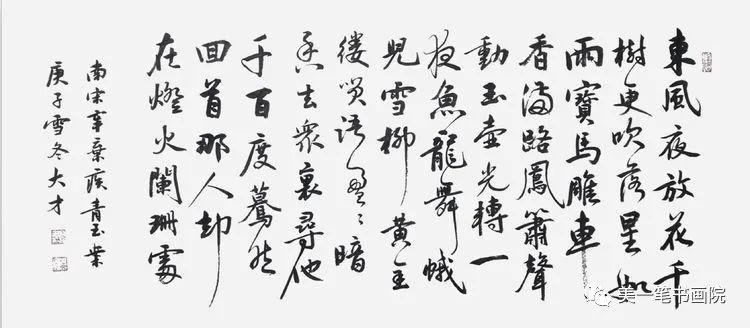 東風夜放花千
樹更吹落星如
雨寶馬雕車
香滿路鳳簫聲
動玉壺光轉一
夜魚龍舞蛾
兒雪柳黃金
縷笑語盈〻暗
香去衆裏尋他
千百度驀然
回首那人却
在燈火闌珊處
南宋辛棄疾青玉案
庚子雪冬大才
美一笔书画院